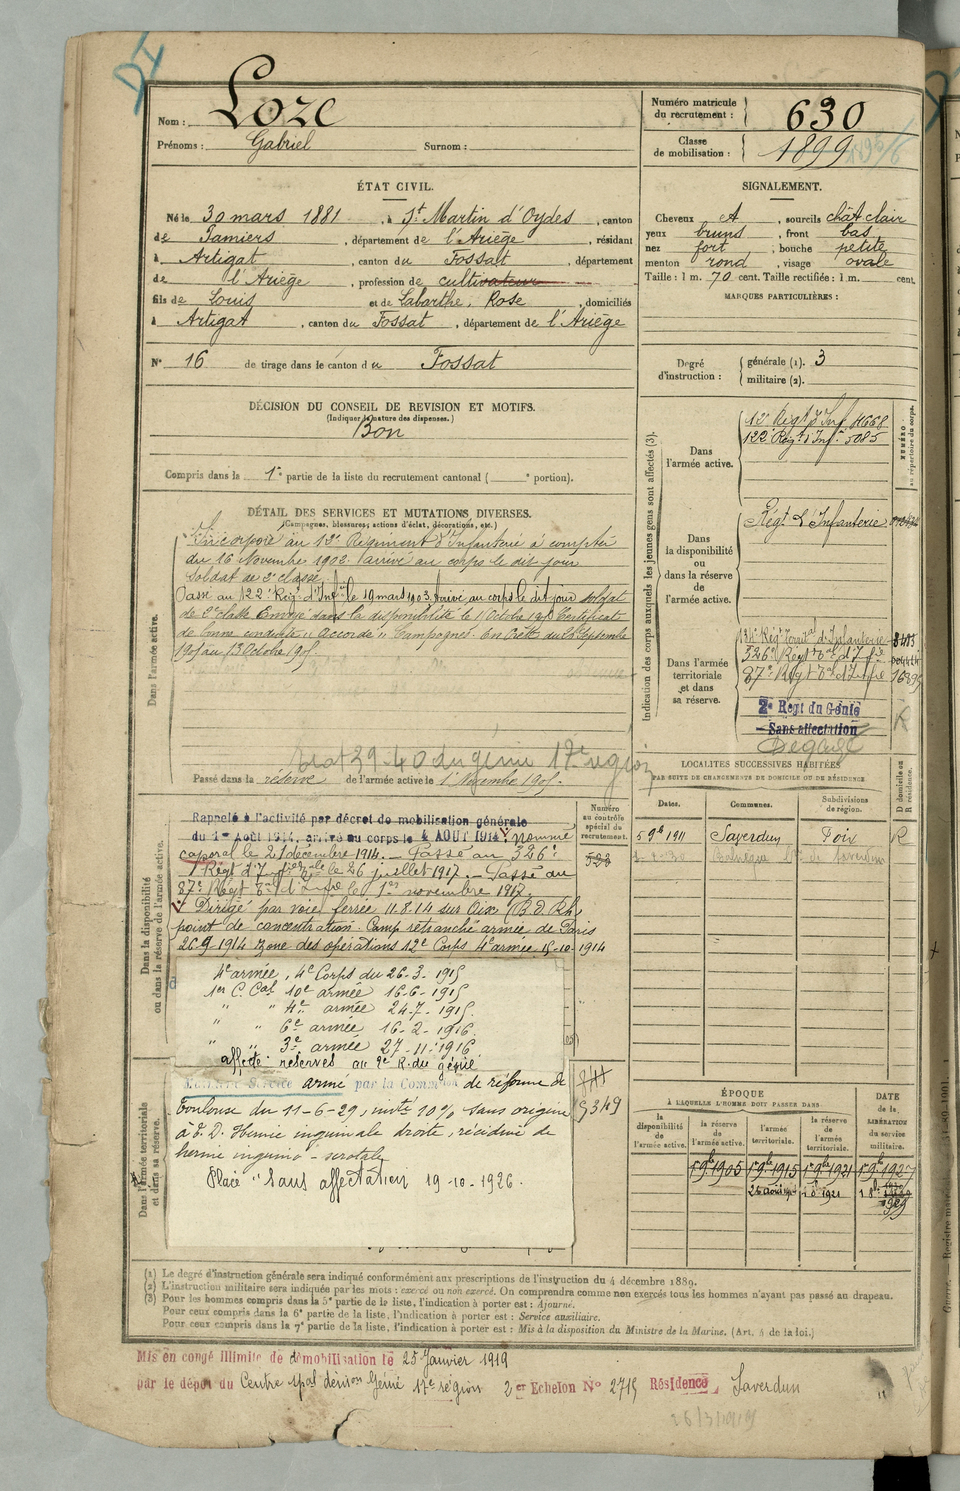 Nom : Loze
Prénoms : Gabriel Surnom :
Numéro matricule du recrutement : 630
Classe de mobilisation : 1899 1896/6
ÉTAT CIVIL.
Né le 30 mars 1881, à St Martin d'Oydes, canton
de Pamiers, département de l'Ariège, résidant
à Artigat, canton du Fossat, département
de l'Ariège, profession de cultivateur
fils de Louis et de Labarthe, Rose, domiciliés
à Artigat, canton du Fossat, département de l'Ariège
N° 16 de tirage dans le canton du Fossat
SIGNALEMENT.
Cheveux A, sourcils chât clair
yeux bruns, front bas
nez fort, bouche petite
menton rond, visage ovale
Taille : 1 m. 70 cent. Taille rectifiée : 1 m. cent.
MARQUES PARTICULIÈRES :
Degré d'instruction : générale (1). 3
militaire (2).
DÉCISION DU CONSEIL DE REVISION ET MOTIFS.
(Indiquer la nature des dispenses.)
Bon
Compris dans la 1e partie de la liste du recrutement cantonal ( e portion).
DÉTAIL DES SERVICES ET MUTATIONS DIVERSES.
(Campagnes, blessures, actions d'éclat, décorations, etc.)
Dans l'armée active.
Incorporé au 12e Régiment d'Infanterie à compter
du 16 Novembre 1902. Arrivé au corps le dit jour
Soldat de 2e classe.
Passé au 122e Régt d'Infie le 19 mars 1903. Arrivé au corps le dit jour soldat
de 2e classe Envoyé dans la disponibilité le 1 Octobre 1905 Certificat
de bonne conduite "Accordé" Campagnes: En Crète du
1905 au 13 Octobre 1905.
39-40 du génie 17e région
Passé dans la réserve de l'armée active le 1 Novembre 1905.
Indication des corps auxquels les jeunes gens sont affectés (3).
NUMÉRO au répertoire du corps.
Dans l'armée active.
12e Régt d'Inf. 4668
122e Régt d'Infie 5085
Dans la disponibilité ou dans la réserve de l'armée active.
Régt d'Infanterie
Dans l'armée territoriale et dans sa réserve.
134e Régt territal d'Infanterie 8413
326e Régt d'Infie
87e Régt Tal d'Infie
2e Régt du Génie
Sans affectation
Dégagé
R
LOCALITÉS SUCCESSIVES HABITÉES
PAR SUITE DE CHANGEMENTS DE DOMICILE OU DE RÉSIDENCE.
Dates. Communes. Subdivisions de région. D domicile ou R résidence.
5 9b 1911 Saverdun Foix R
Dans la disponibilité ou dans la réserve de l'armée active.
Numéro au contrôle spécial du recrutement.
Rappelé à l'activité par décret de mobilisation générale
du 1er Août 1914, arrivé au corps le 4 AOUT 1914. Nommé
caporal le 21 décembre 1914. — Passé au 326e
Régt d'Infie le 26 juillet 1917. — Passé au
87e Régt Tal d'Infie le 1er novembre 1917.
Dirigé par voie ferrée 11.8.14 sur Aix (B.d.Rh)
point de concentration. Camp retranché armée de Paris
26-9-1914 zone des opérations 12e Corps 4e armée 15-10-1914
4e armée, 4e Corps du 26-3-1915
1er C. Cal 10e armée 16-6-1915
" " 4e armée 24-7-1915.
" " 6e armée 16-2-1916.
" " 3e armée 27-11-1916.
affecté réserves au 2e R. du génie
Dans l'armée territoriale et dans sa réserve.
Service armé par la Commion de réforme de
Toulouse du 11-6-29, invté 10% sans origine
à E.D. Hernie inguinale droite, récidive de
hernie inguino-scrotale
Placé "Sans affectation 19-10-1926.
5349
ÉPOQUE
À LAQUELLE L'HOMME DOIT PASSER DANS
la disponibilité de l'armée active. la réserve de l'armée active. l'armée territoriale. la réserve de l'armée territoriale. DATE de la LIBÉRATION du service militaire.
1 9b 1905 1 9b 1915 1 9b 1921 1 9b 1927
(1) Le degré d'instruction générale sera indiqué conformément aux prescriptions de l'instruction du 4 décembre 1889.
(2) L'instruction militaire sera indiquée par les mots : exercé ou non exercé. On comprendra comme non exercés tous les hommes n'ayant pas passé au drapeau.
(3) Pour les hommes compris dans la 5e partie de la liste, l'indication à porter est : Ajourné.
Pour ceux compris dans la 6e partie de la liste, l'indication à porter est : Service auxiliaire.
Pour ceux compris dans la 7e partie de la liste, l'indication à porter est : Mis à la disposition du Ministre de la Marine. (Art. 4 de la loi.)
Mis en congé illimité de démobilisation le 25 Janvier 1919
par le dépôt du Centre Mobilisation Génie 17e région 2er Echelon N° 2715 Résidence, Saverdun